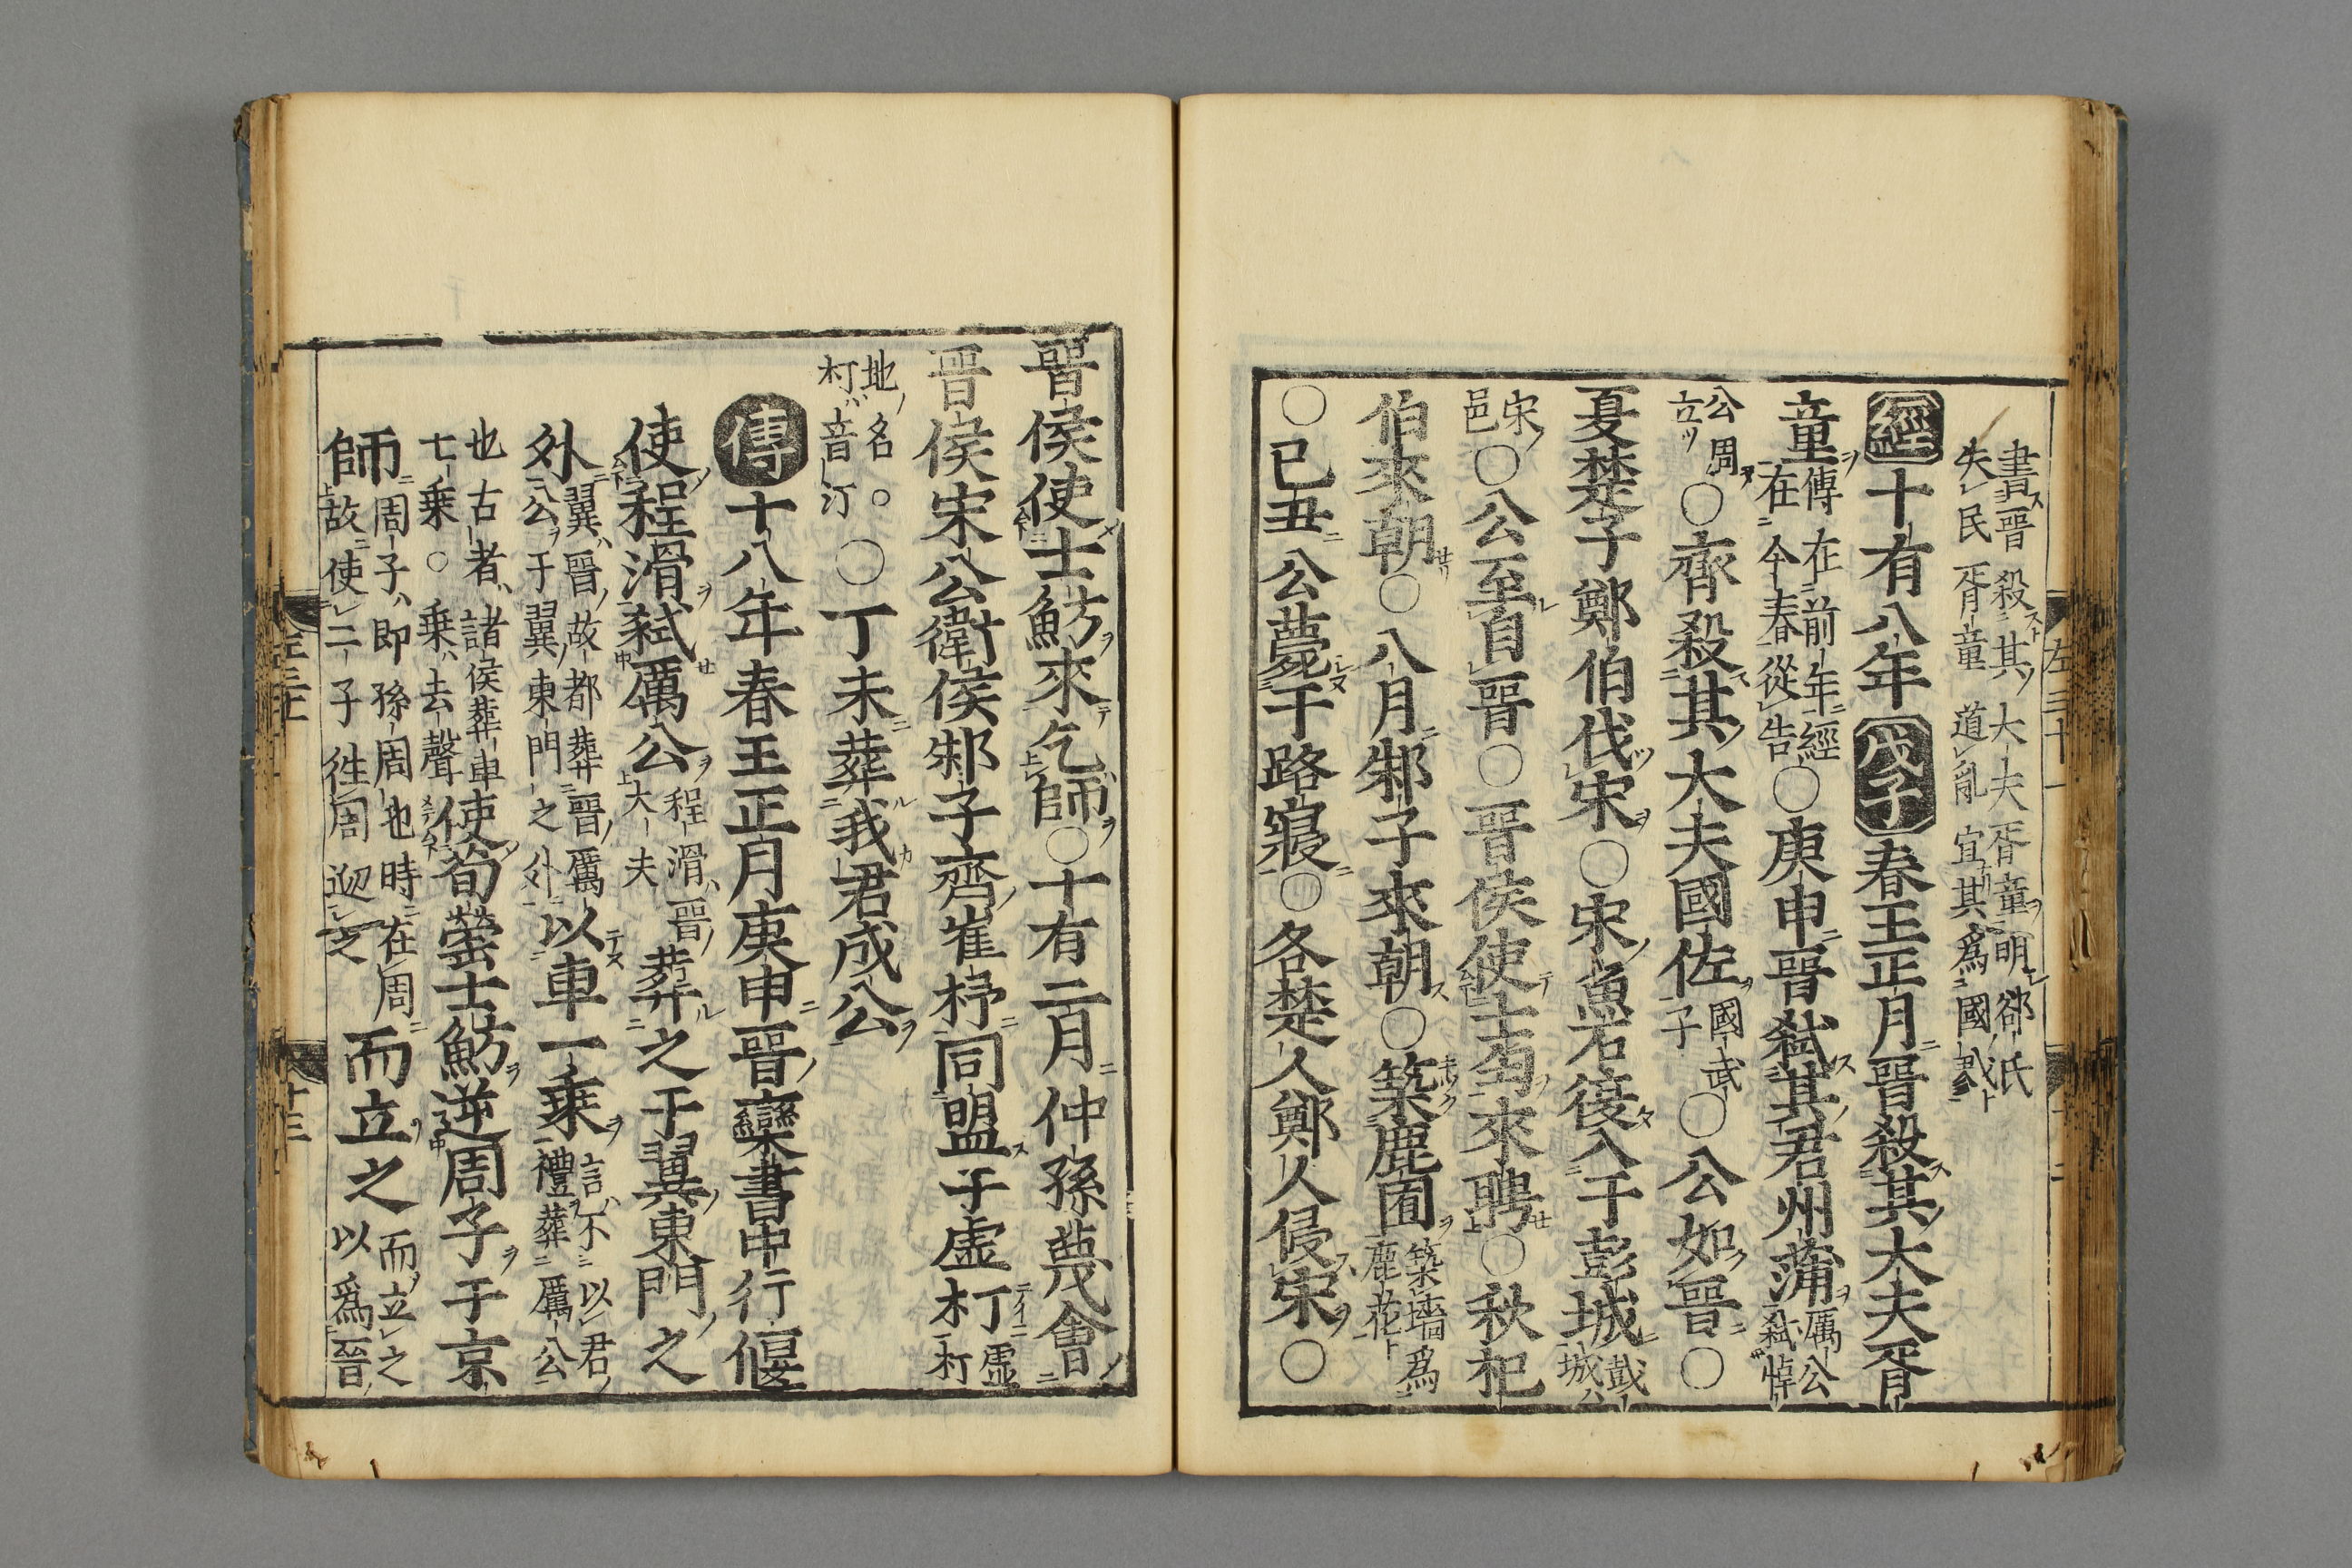 書晋殺其大夫胥童明郤氏
失民胥童道亂宜其爲國戮
經十有八年戊子春王正月晋殺其大夫胥
童傳在前年經在今春從告〇庚申晋弑其君州蒲厲公弑悼
公周立〇齊殺其大夫國佐國武子〇公如晋〇
夏楚子鄭伯伐宋〇宋魚石復入于彭城彭城
宋邑〇公至自晋〇晋侯使士匄來聘〇秋杞
伯來朝〇八月邾子來朝〇築鹿囿築墻爲鹿苑
〇已丑公薨于路寢〇冬楚人鄭人侵宋〇
晋侯使士魴來乞師〇十有二月仲孫蔑會
晋侯宋公衛侯邾子齊崔杼同盟于虛朾虛朾
地名○朾音汀〇丁未葬我君成公
傳十八年春王正月庚申晋欒書中行偃
使程滑弑厲公程滑晋大夫葬之于翼東門之
外翼晋故都葬晋厲公于翼東門之外以車一乗言不以君禮葬厲公
也古者諸侯葬車七乗○乗去聲使荀罃士魴逆周子于京
師周子即孫周也時在周故使二子往周迎之而立之而立之以爲晉